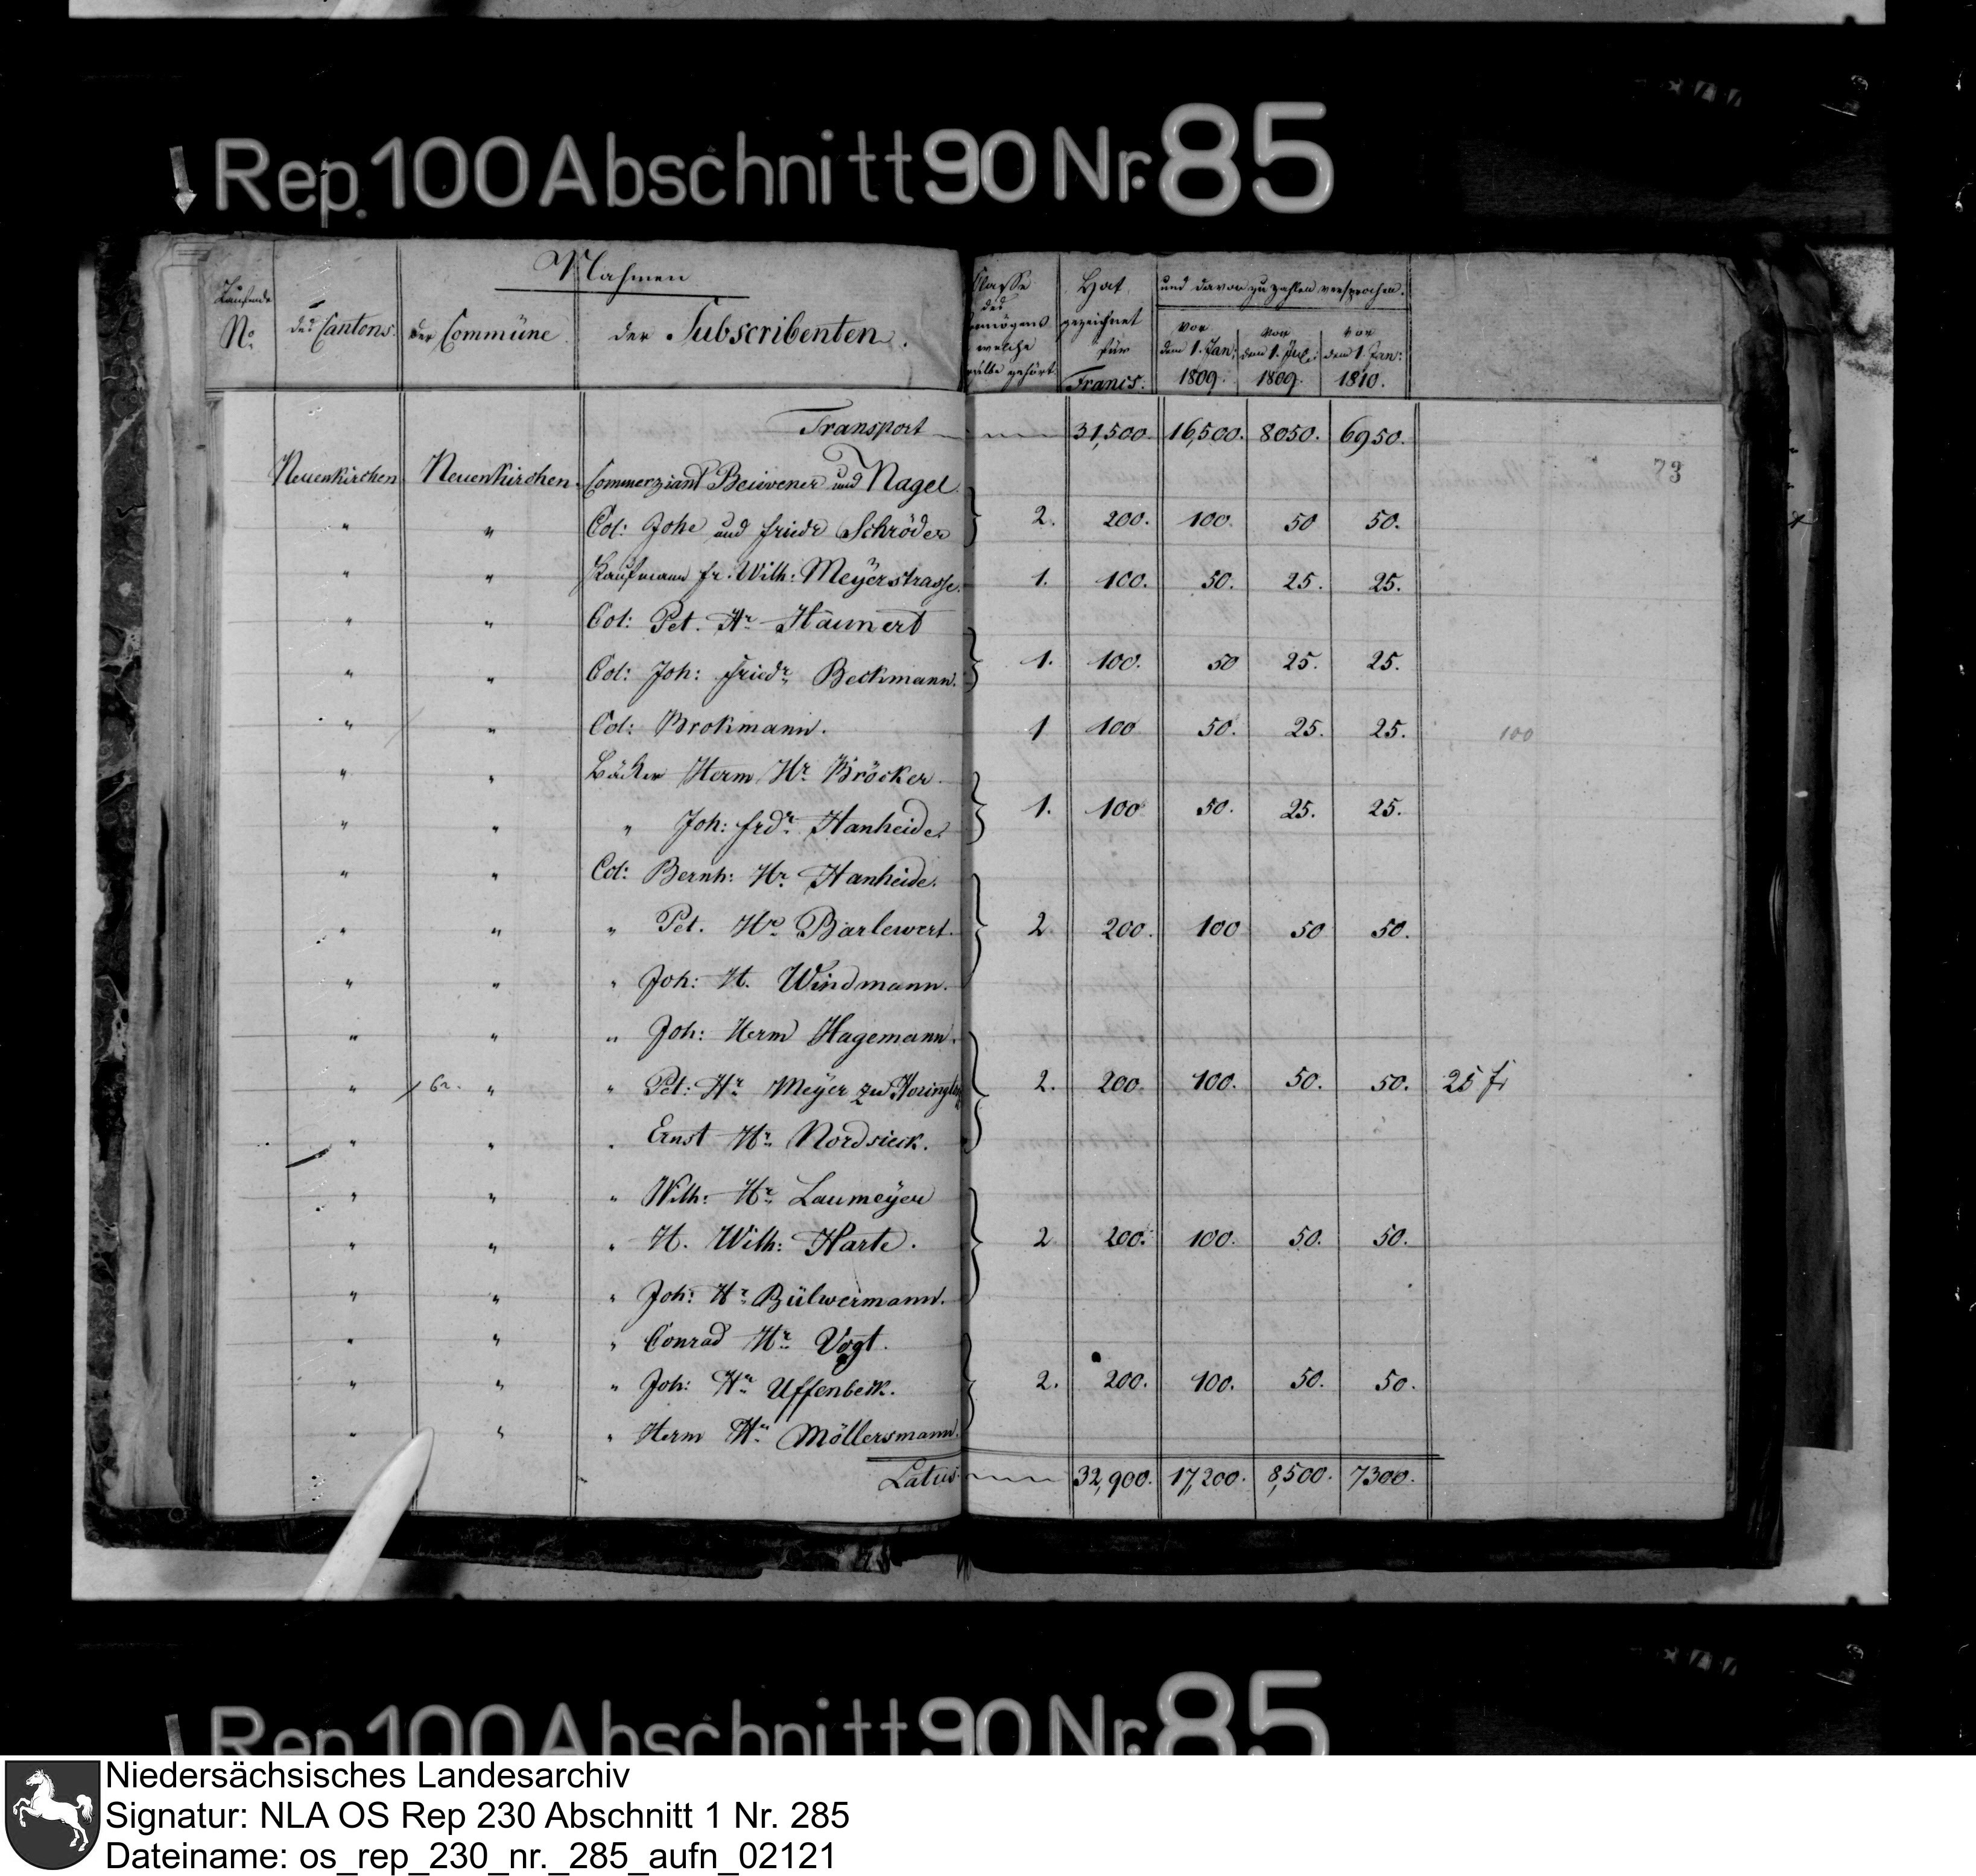 Rep. 100 Abschnitt 90 Nr. 85
Laufende No
Nahmen
des Cantons.
der Commüne
der Subscribenten.
Classe des Vermögens welche selbe gehört
Hat gezeichnet für Francs.
und davon zu zahlen versprochen.
vor dem 1. Jan: 1809.
von dem 1. Jul: 1809.
vor dem 1. Jan: 1810.
Transport 31,500. 16,500. 8050. 6950.
73
Neuenkirchen Neuenkirchen. Commerziant Beisvener und Nagel.
" " Col: Joh und Friedr Schröder } 2. 200. 100. 50 50.
" " Kaufmann fr. Wilh: Meÿerstrasse. 1. 100. 50. 25. 25.
" " Col: Pet. Hr Haunert
" " Col: Joh: Friedr Beckmann. } 1. 100. 50 25. 25.
" " Col: Brokmann. 1 100 50. 25. 25. 100
" " Bäcker Herm Hr Bröcker.
" " " Joh: frdr. Hanheide. } 1. 100 50. 25. 25.
" " Col: Bernh: Hr. Hanheide.
" " " Pet. Hr Barlewert. } 2 200. 100 50 50.
" " " Joh: H. Windmann.
" " " Joh: Herm Hagemann.
" 6r. " " Pet: Hr Meÿer zu } 2. 200. 100. 50. 50. 25 fr
" " " Ernst Hr. Nordsieck.
" " " Wilh: Hr. Laumeÿer
" " " H. Wilh: Harte. } 2 200. 100. 50. 50.
" " " Joh: Hr. Bülwermann.
" " " Conrad Hr. Vogt.
" " " Joh: Hr Uffenbeck. } 2. 200. 100. 50. 50.
" " " Herm Hr. Möllersmann.
Latus 32,900. 17,200. 8,500. 7300.
Rep. 100 Abschnitt 90 Nr. 85
Niedersächsisches Landesarchiv
Signatur: NLA OS Rep 230 Abschnitt 1 Nr. 285
Dateiname: os_rep_230_nr._285_aufn_02121